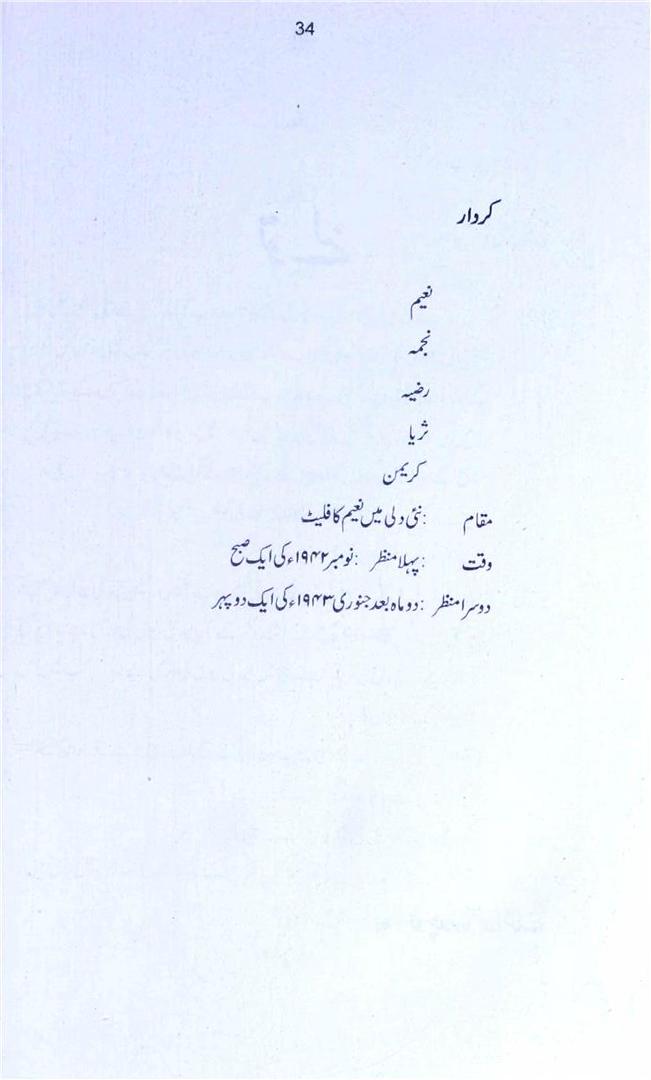 34
کردار
نعیم
نجمہ
رضیہ
ثریا
کریمن
مقام :نئی دلی میں نعیم کا فلیٹ
وقت :پہلا منظر :نومبر ۱۹۴۲ء کی ایک صبح
دوسرا منظر :دو ماہ بعد جنوری ۱۹۴۳ء کی ایک دوپہر